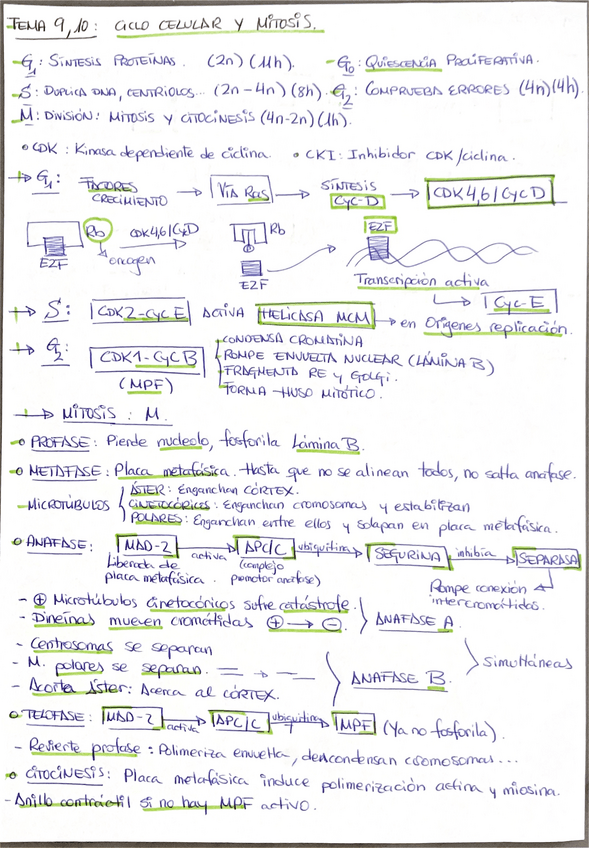 TEMA 9,10: CICLO CELULAR Y MITOSIS.
- G1: SÍNTESIS PROTEÍNAS. (2n) (11h). - G0: QUIESCENCIA PROLIFERATIVA.
- S: DUPLICA DNA, CENTRIOLOS... (2n-4n) (8h). - G2: COMPRUEBA ERRORES (4n) (4h).
M: DIVISIÓN: MITOSIS Y CITOCINESIS (4n-2n) (1h).
• CDK: Kinasa dependiente de ciclina. • CKI: Inhibidor CDK/ciclina.
→ G1: FACTORES CRECIMIENTO → VÍA RAS → SÍNTESIS CYC-D → CDK4,6/CYCD
Rb CDK4,6/CYCD Rb E2F
E2F oncogen E2F
Transcripción activa
→ Cyc-E
→ S: CDK2-CYCE ACTIVA HELICASA MCM → en Orígenes replicación.
→ G2: CDK1-CYCB (MPF)
CONDENSA CROMATINA
ROMPE ENVUELTA NUCLEAR (LÁMINA B)
FRAGMENTA RE Y GOLGI.
FORMA HUSO MITÓTICO.
→ MITOSIS: M.
• PROFASE: Pierde nucleolo, fosforila Lámina B.
• METAFASE: Placa metafásica. Hasta que no se alinean todos, no salta anafase.
- MICROTÚBULOS
ÁSTER: Enganchan CÓRTEX.
CINETOCÓRICOS: Enganchan cromosomas y estabilizan
POLARES: Enganchan entre ellos y solapan en placa metafásica.
• ANAFASE: MAD-2 → activa APC/C ubiquitina → SEGURINA inhibía → SEPARASA
Liberada de placa metafásica. (complejo promotor anafase)
Rompe conexión intercromátidas.
- ⊕ Microtúbulos cinetocóricos sufre catástrofe.
- Dineínas mueven cromátidas ⊕ → ⊖. ANAFASE A
- Centrosomas se separan
- M. polares se separan.
- Acorta áster: Acerca al CÓRTEX.
ANAFASE B
Simultáneas
• TELOFASE: MAD-2 → activa APC/C ubiquitina → MPF (Ya no fosforila).
- Revierte profase: Polimeriza envuelta, descondensan cromosomas...
• CITOCÍNESIS: Placa metafásica induce polimerización actina y miosina.
- Anillo contráctil si no hay MPF activo.